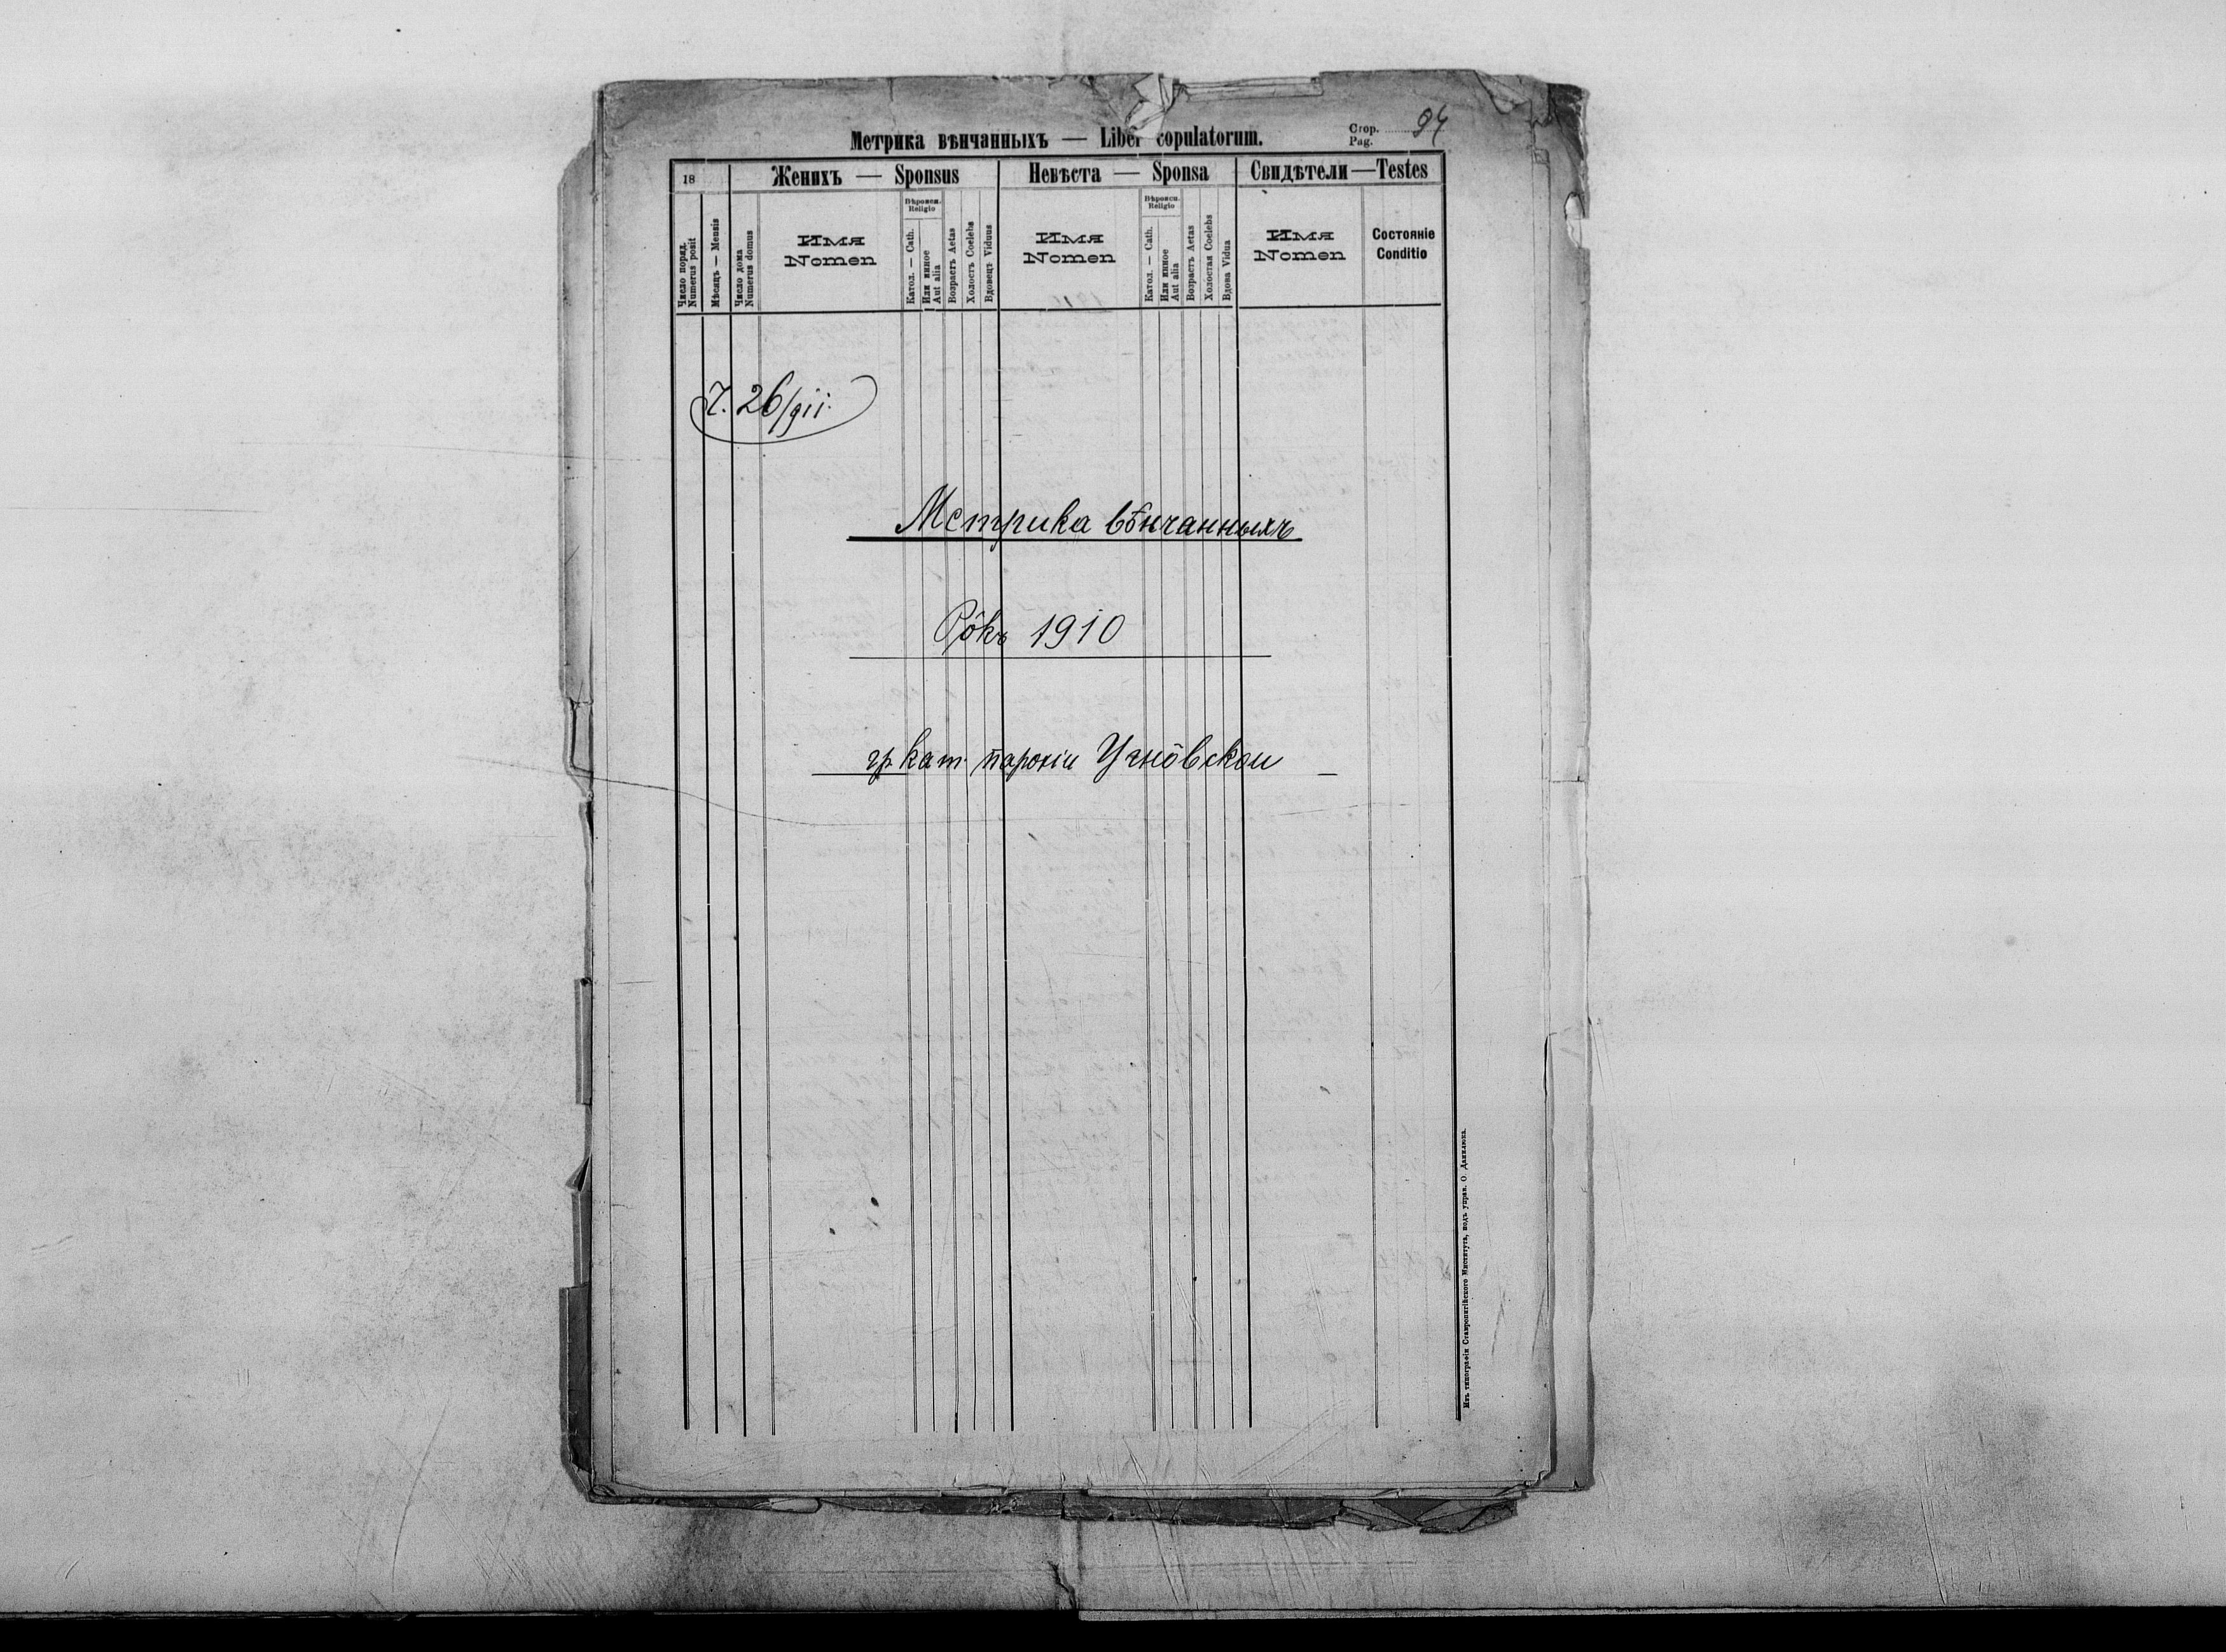 Метрика вѣнчанныхъ — Liber copulatorum.
Стор. 94
Pag.
18
Женихъ — Sponsus
Невѣста — Sponsa
Свидѣтели — Testes
Число поряд.
Numerus posit
Мѣсяцъ — Mensis
Число дома
Numerus domus
Имя
Nomen
Вѣроисп.
Religio
Катол. — Cath.
Или инное
Aut alia
Возрастъ Aetas
Холостъ Coelebs
Вдовецъ Viduus
Имя
Nomen
Вѣроисп.
Religio
Катол. — Cath.
Или инное
Aut alia
Возрастъ Aetas
Холостая Coelebs
Вдова Vidua
Имя
Nomen
Состояніе
Conditio
Ч. 26/911.
Метрика вѣнчанныхъ
Рôкъ 1910
гр. кат. парохіи Угнôвскои
Изъ типографіи Ставропигійского Института, подъ управ. О. Данилюка.